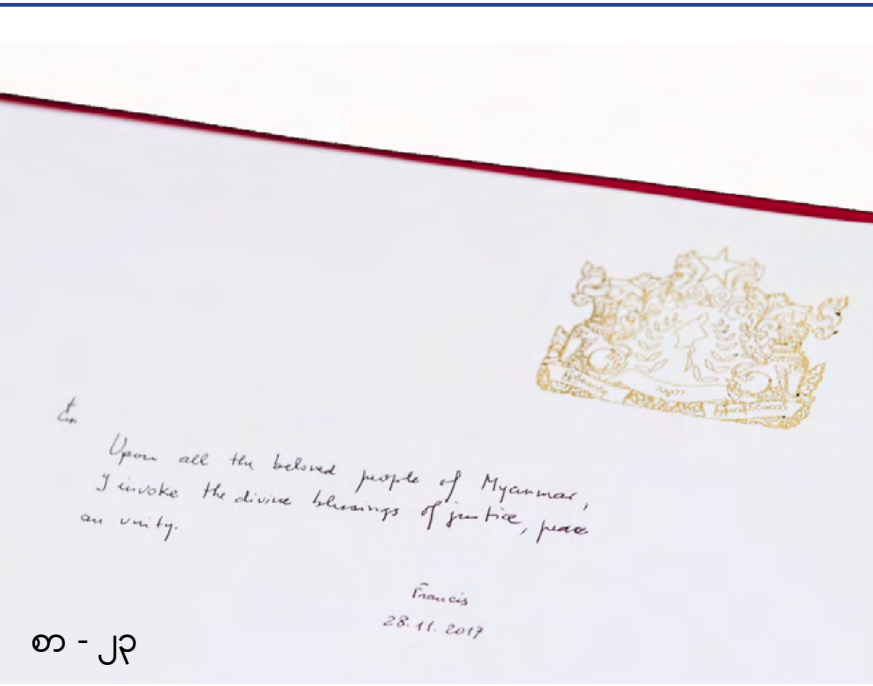 Upon all the beloved people of Myanmar,
I invoke the divine blessings of justice, peace
an unity.
Francis
28.11.2017
စာ - ၂၃